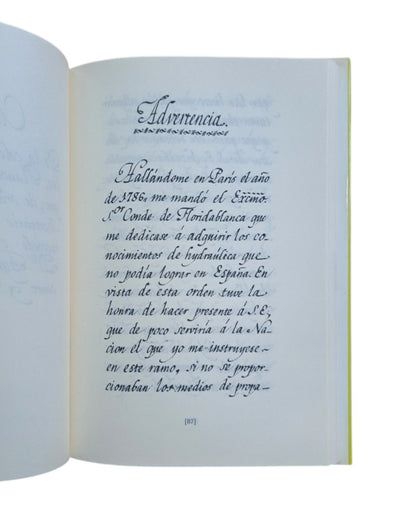 Advertencia.
Hallándome en París el año
de 1786, me mandó el Excmo.
S.or Conde de Floridablanca que
me dedicase á adquirir los co-
nocimientos de hydráulica que
no podía lograr en España. En
vista de esta orden tuve la
honra de hacer presente á S.E,
que de poco serviría á la Na-
cion el que yo me instruyese
en este ramo, si no se propor-
cionaban los medios de propa-
[117]